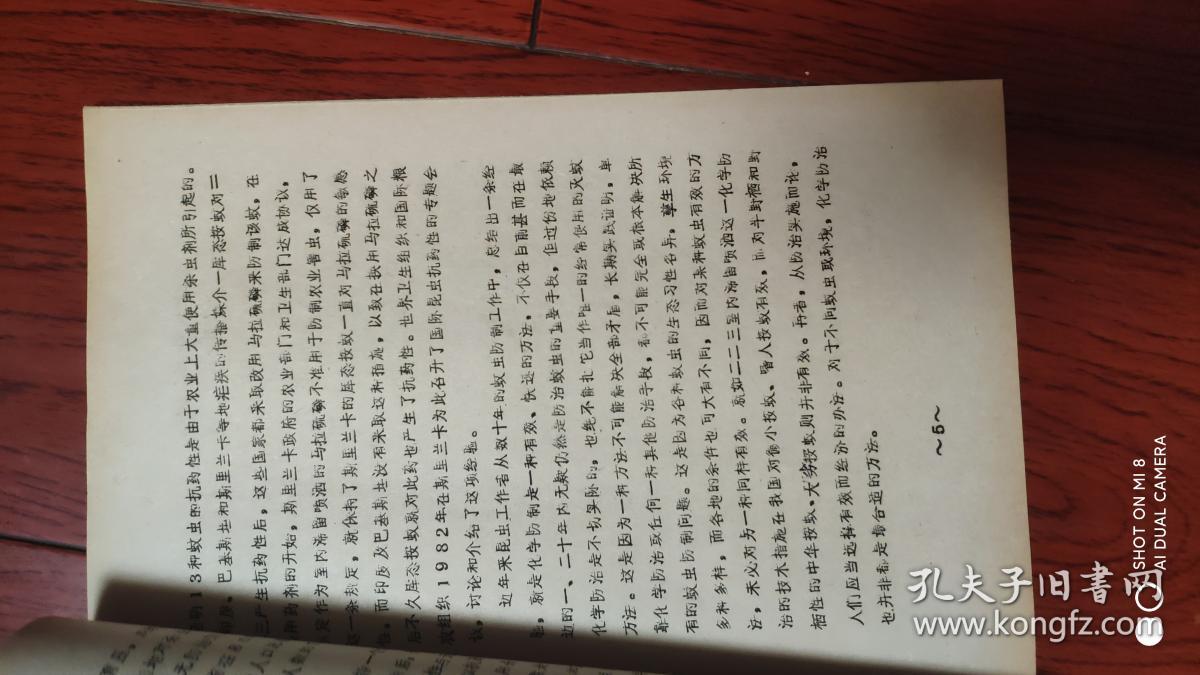 明13种蚊虫的抗药性是由于农业上大量使用杀虫剂所引起的。
印度、巴基斯坦和斯里兰卡等地疟疾的传播媒介—库态按蚊对二
三产生抗药性后，这些国家都采取改用马拉硫磷来防制该蚊，在
用药剂的开始，斯里兰卡政府的农业部门和卫生部门达成协议，
规定作为室内滞留喷洒的马拉硫磷不准用于防制农业害虫，仅用了
这一条规定，就保持了斯里兰卡的库态按蚊一直对马拉硫磷的敏感
性。而印度及巴基斯坦没有采取这种措施，以致在换用马拉硫磷之
后不久库态按蚊就对此药也产生了抗药性。也界卫生组织和国际粮
农组织1982年在斯里兰卡为此召开了国际昆虫抗药性的专题会
议，讨论和介绍了这项经验。
近年来昆虫工作者从数十年的蚊虫防制工作中，总结出一条经
验，就是化学防制是一种有效、快速的方法，不仅在目前甚而在最
近的一、二十年内无疑仍然是防治蚊虫的重要手段，但过份地依赖
化学防治是不切实际的，也绝不能把它当作唯一的经常使用的灭蚊
方法。这是因为一种方法不可能解决全部矛盾，长期实践证明，单
靠化学防治或任何一种其他防治手段，都不可能完全或根本解决所
有的蚊虫防制问题。这是因为各种蚊虫的生态习性各异，孳生环境
多种多样，而各地的条件也可大有不同，因而对某种蚊虫有效的方
法，未必对另一种同样有效。就如二二三室内滞留喷洒这一化学防
治的技术措施在我国对微小按蚊、嗜人按蚊有效，而对半野栖和野
栖性的中华按蚊、大劣按蚊则并非有效。再者，从防治实施而论，
人们应当选择有效而经济的办法。对于不同蚊虫取环境，化学防治
也并非都是最合适的方法。
～5～
孔夫子旧书网
www.kongfz.com
SHOT ON MI 8
AI DUAL CAMERA